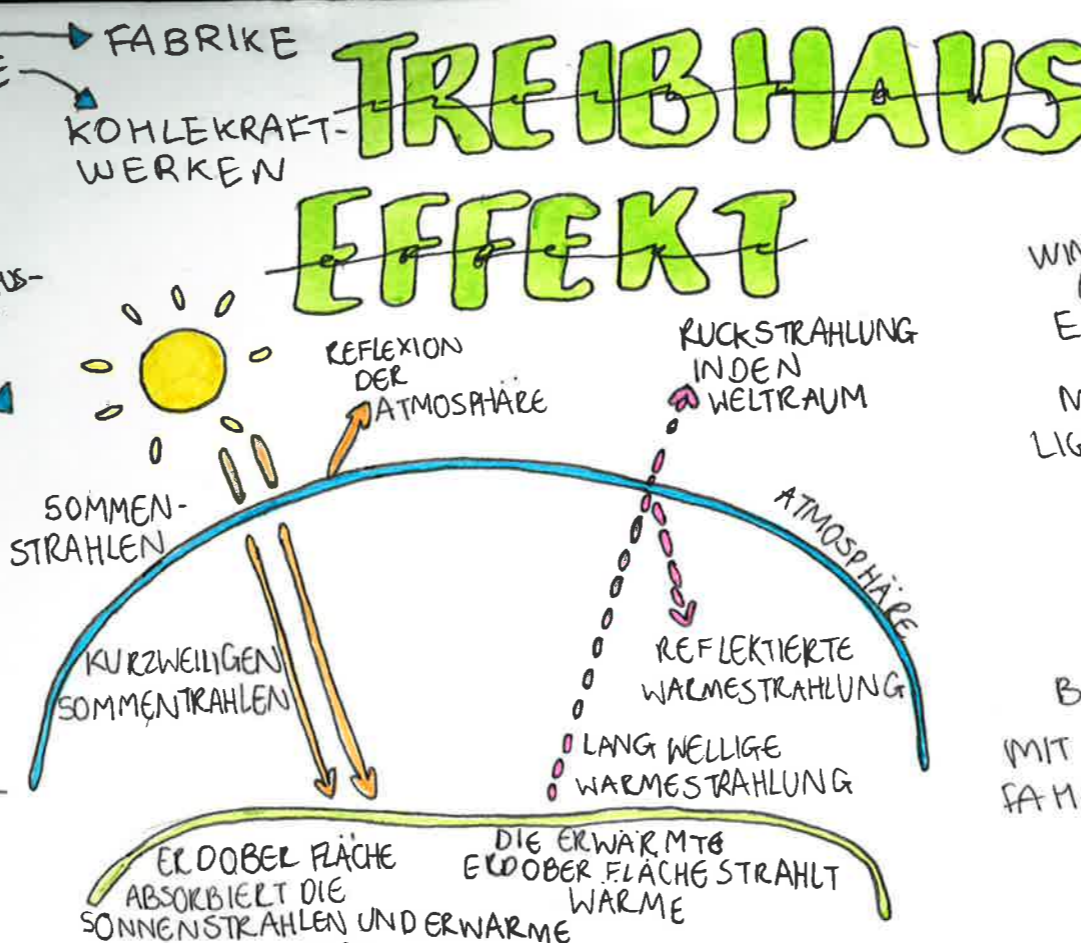 FABRIKE
KOHLEKRAFT-
WERKEN
TREIBHAUS
EFFEKT
REFLEXION
DER
ATMOSPHÄRE
RUCKSTRAHLUNG
IN DEN
WELTRAUM
SOMMEN-
STRAHLEN
ATMOSPHÄRE
KURZWEILIGEN
SOMMENTRAHLEN
REFLEKTIERTE
WARMESTRAHLUNG
LANG WELLIGE
WARMESTRAHLUNG
ERDOBER FLÄCHE
ABSORBIERT DIE
SONNENSTRAHLEN UND ERWARME
DIE ERWÄRMTE
ERDOBER FLÄCHE STRAHLT
WÄRME
MIT